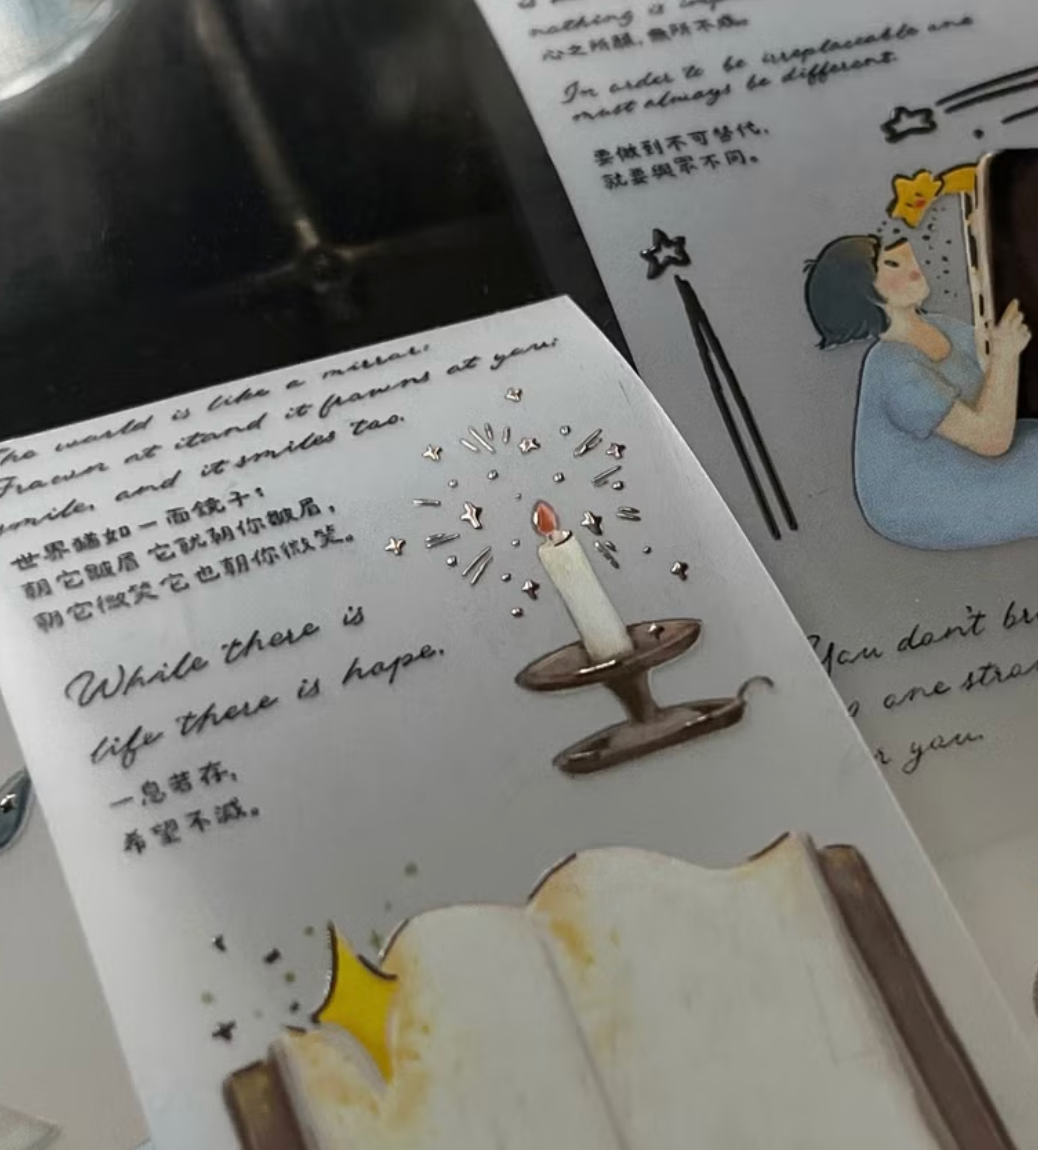 The world is like a mirror:
Frawn at itand it frawns at you;
smile, and it smiles too.
世界貓如一面鏡子：
朝它皺眉它就朝你皺眉，
朝它微笑它也朝你微笑。
While there is
life there is hope.
一息若存，
希望不滅。
nathing is
心之所願，無所不成。
In order to be irreplaceable one
must always be different.
要做到不可替代，
就要與眾不同。
You don't
one
you.